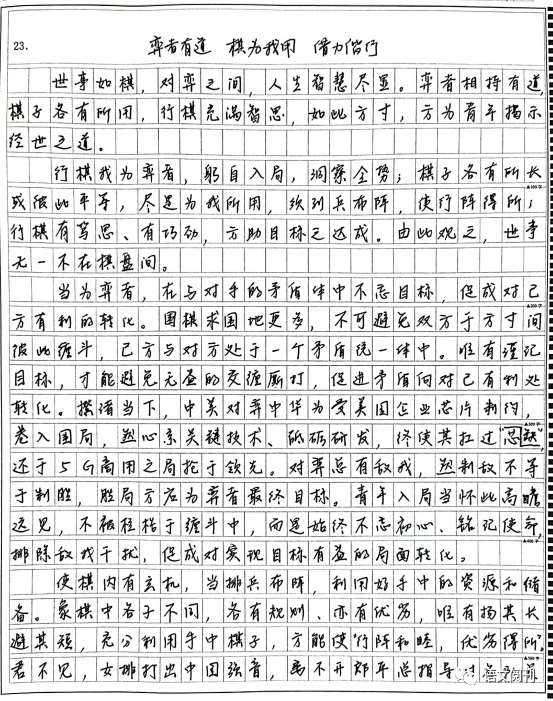 23.
弈者有道 棋为我用 借力偕行
世事如棋，对弈之间，人生智慧尽显。弈者相持有道，
棋子各有所用，行棋充满智思，如此方寸，方为青年揭示
经世之道。
行棋我为弈者，躬自入局，洞察全势；棋子各有所长
或彼此平等，尽是为我所用，统列兵布阵，使行阵得所；
行棋有笃思、有巧劲，方助目标之达成。由此观之，世事
无一不在棋盘间。
当为弈者，在与对手的矛盾体中不忘目标，促成对己
方有利的转化。围棋求围地更多，不可避免双方于方寸间
彼此缠斗，己方与对方处于一个矛盾统一体中。唯有谨记
目标，才能避免无益的交缠厮打，促进矛盾向对己有利处
转化。揆诸当下，中美对弈中华为受美国企业芯片制约，
卷入困局，却心系关键技术、砥砺研发，终使其扛过"忍缺"，
还于5G商用之局抢于领先。对弈总有敌我，然制敌不等
于制胜，胜局方启为弈者最终目标。青年入局当怀此高瞻
远见，不被桎梏于缠斗中，而是始终不忘初心、铭记使命，
排除敌我干扰，促成对实现目标有益的局面转化。
使棋内有玄机，当排兵布阵，利用好手中的资源和储
备。象棋中各子不同，各有规则、亦有优劣，唯有扬其长
避其短，充分利用手中棋子，方能使"行阵和睦，优劣得所"。
君不见，女排打出中国强音，离不开郎平总指导对
语文阅刊